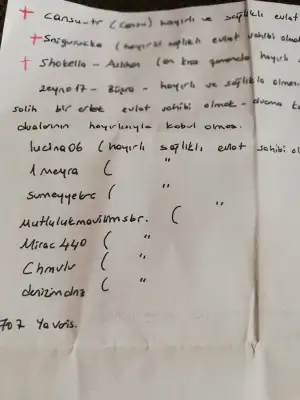 + cansu_tr (cansu) hayırlı ve sağlıklı evlat
+ Snigurucka (hayırlı sağlıklı evlat sahibi olma
+ Shokella - Aslıhan (en kısa zamanda hayırlı
zeyno17 - Büşra - hayırlı ve sağlıkla olması
salih bir erkek evlat sahibi olmak - duama
dualarının hayırlısıyla kabul olması.
lucina06 (hayırlı sağlıklı, evlat sahibi ol
1 meyra ( "
sumeyyebrc ( "
mutlulukmavilimsbr. ( "
Mirac440 ( "
Chmulu ( "
denizimdnz ( "
707 Yavris.